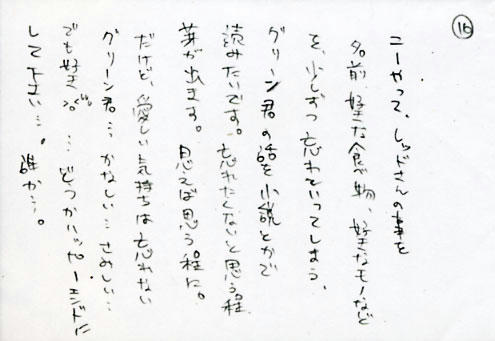 ⑯
こーやって、レッドさんの事を
名前、好きな食べ物、好きなモノなど
を、少しずつ忘れていってしまう、
グリーン君の話を小説とかで
読みたいです。忘れたくないと思う程
芽が出ます。思えば思う程に。
だけど、愛しい気持ちは忘れない
グリーン君…かなしい…さみしい…
でも好き…どっかハッピーエンドに
して下さい…。誰か…。